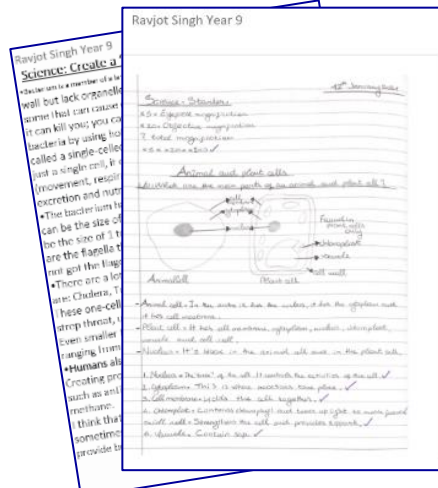 Ravjot Singh Year 9
Science: Create a
wall but lack organelle
some that can cause
it can kill you; you ca
bacteria by using ho
called a single-celle
just a single cell, it
(movement, respir
excretion and nutr
•The bacterium h
can be the size of
be the size of 1 t
are the flagella t
not got the flage
•There are a lo
are: Cholera, T
These one-cell
strep throat, u
Even smaller
ranging from
•Humans als
Creating pro
such as ant
methane.
I think that
sometime
provide b
Ravjot Singh Year 9
Science - Starter
x5 = Eyepiece magnification
Objective magnification
total magnification
Animal and plant cells
What are the main parts of an animal and plant cell?
cell
cytoplasm
Found in
plant cells
only
chloroplast
vacuole
cell wall
Animal cell
Plant cell
- Animal cell = In the centre it has the nucleus, it has the cytoplasm and
it has cell membrane.
- Plant cell = It has cell membrane, cytoplasm, nucleus, chloroplast,
vacuole and cell wall.
- Nucleus = It's there in the animal cell and in the plant cell.
1. Nucleus = The "brain" of the cell. It controls the activities of the cell.
2. Cytoplasm = This is where reactions take place.
3. Cell membrane = Holds the cell together.
4. Chloroplast = Contains chlorophyll and uses up light to make food
cell wall = Strengthens the cell and provides support.
6. Vacuole = Contain sap